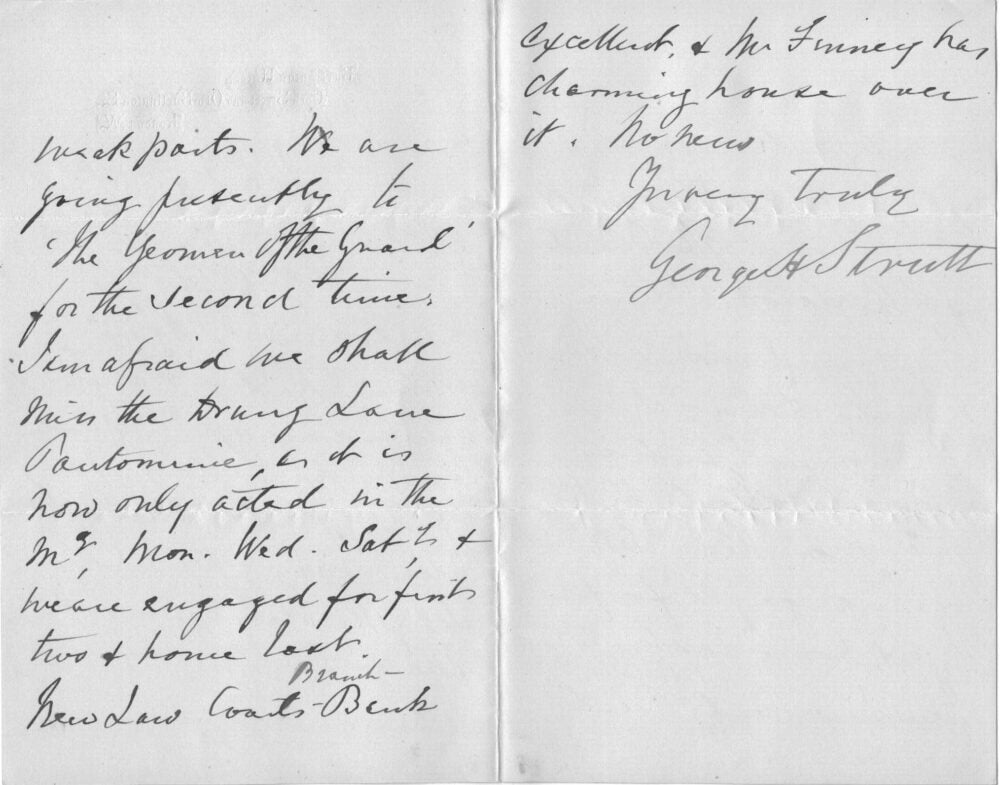 weak parts. We are
going presently to
'The Yeomen Of the Guard'
for the second time.
I am afraid we shall
miss the Drury Lane
Pantomime, as it is
now only acted in the
Mg, Mon. Wed. Sat,ys &
we are engaged for first
two & home last.
Branch
New Law Courts - Bank
excellent, & Mr Finney has
charming house over
it. No news
Yrs very truly
George H Strutt